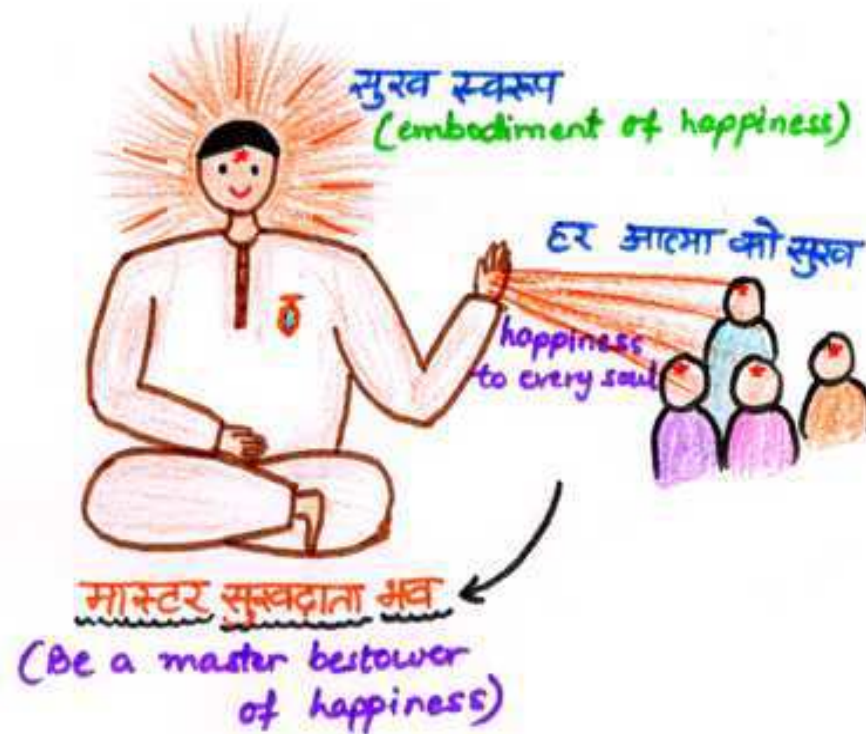 सुख स्वरूप
(embodiment of happiness)
हर आत्मा को सुख
happiness
to every soul
मास्टर सुखदाता भव
(Be a master bestower
of happiness)